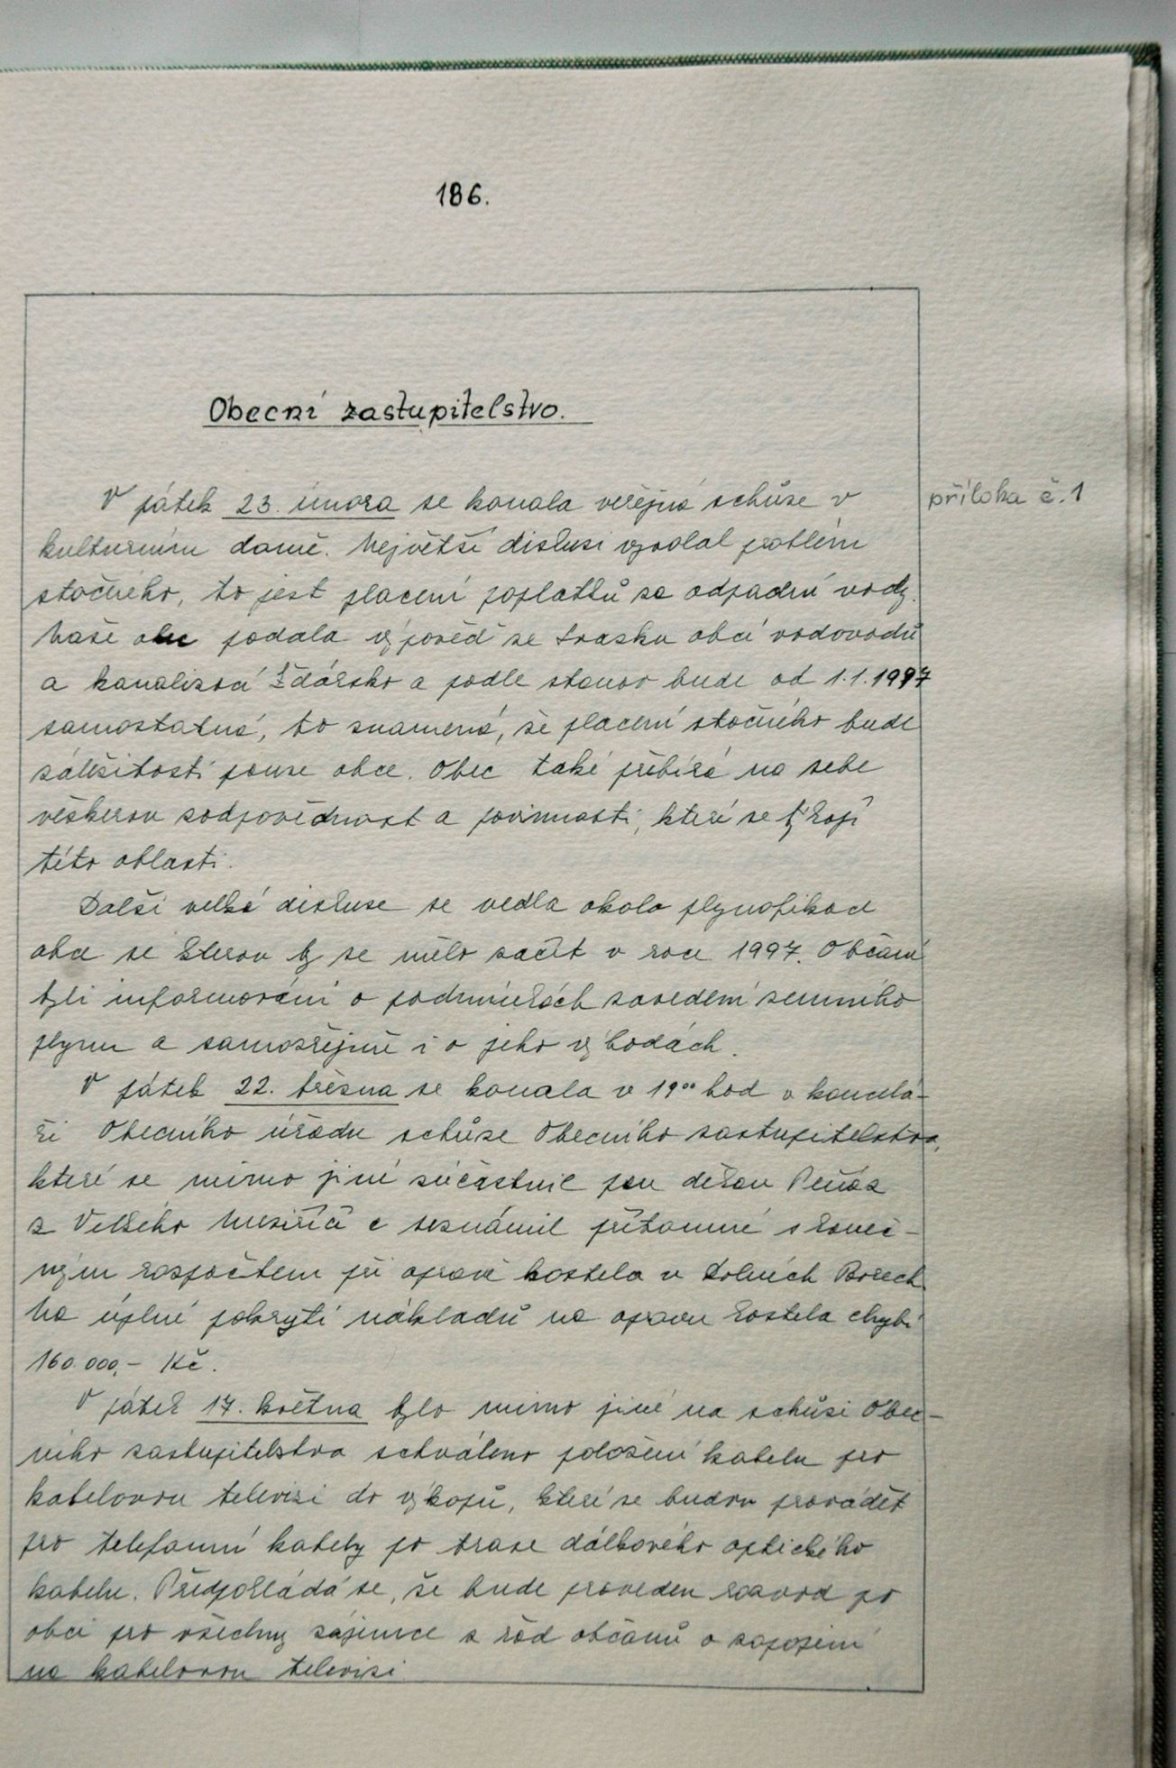 186.
Obecní zastupitelstvo.
V pátek 23. února se konala veřejná schůze v
příloha č.1
kulturním domě. Největší diskusi vyvolal problém
stočného, to jest placení poplatků za odpadní vody.
Naše obec podala výpověď ze svazku obcí vodovodů
a kanalizací Žďársko a podle stanov bude od 1.1.1997
samostatná, to znamená, že placení stočného bude
záležitostí pouze obce. Obec také přebírá na sebe
veškerou zodpovědnost a povinnosti, které se týkají
této oblasti.
Další velká diskuse se vedla okolo plynofikace
obce se kterou by se mělo začít v roce 1997. Občané
byli informováni o podmínkách zavedení zemního
plynu a samozřejmě i o jeho výhodách.
V pátek 22. března se konala v 19⁰⁰ hod v kancelá-
ři Obecního úřadu schůze Obecního zastupitelstva,
které se mimo jiné zúčastnil pan děkan Peňáz
z Velkého Meziříčí a seznámil přítomné s koneč-
ným rozpočtem při opravě kostela v Dolních Borech.
Na úplné pokrytí nákladů na opravu kostela chybí
160.000,- Kč.
V pátek 17. května bylo mimo jiné na schůzi Obec-
ního zastupitelstva schváleno položení kabelu pro
kabelovou televizi do výkopů, které se budou provádět
pro telefonní kabely po trase dálkového optického
kabelu. Předpokládá se, že bude proveden rozvod po
obci pro všechny zájemce z řad občanů o zapojení
na kabelovou televizi